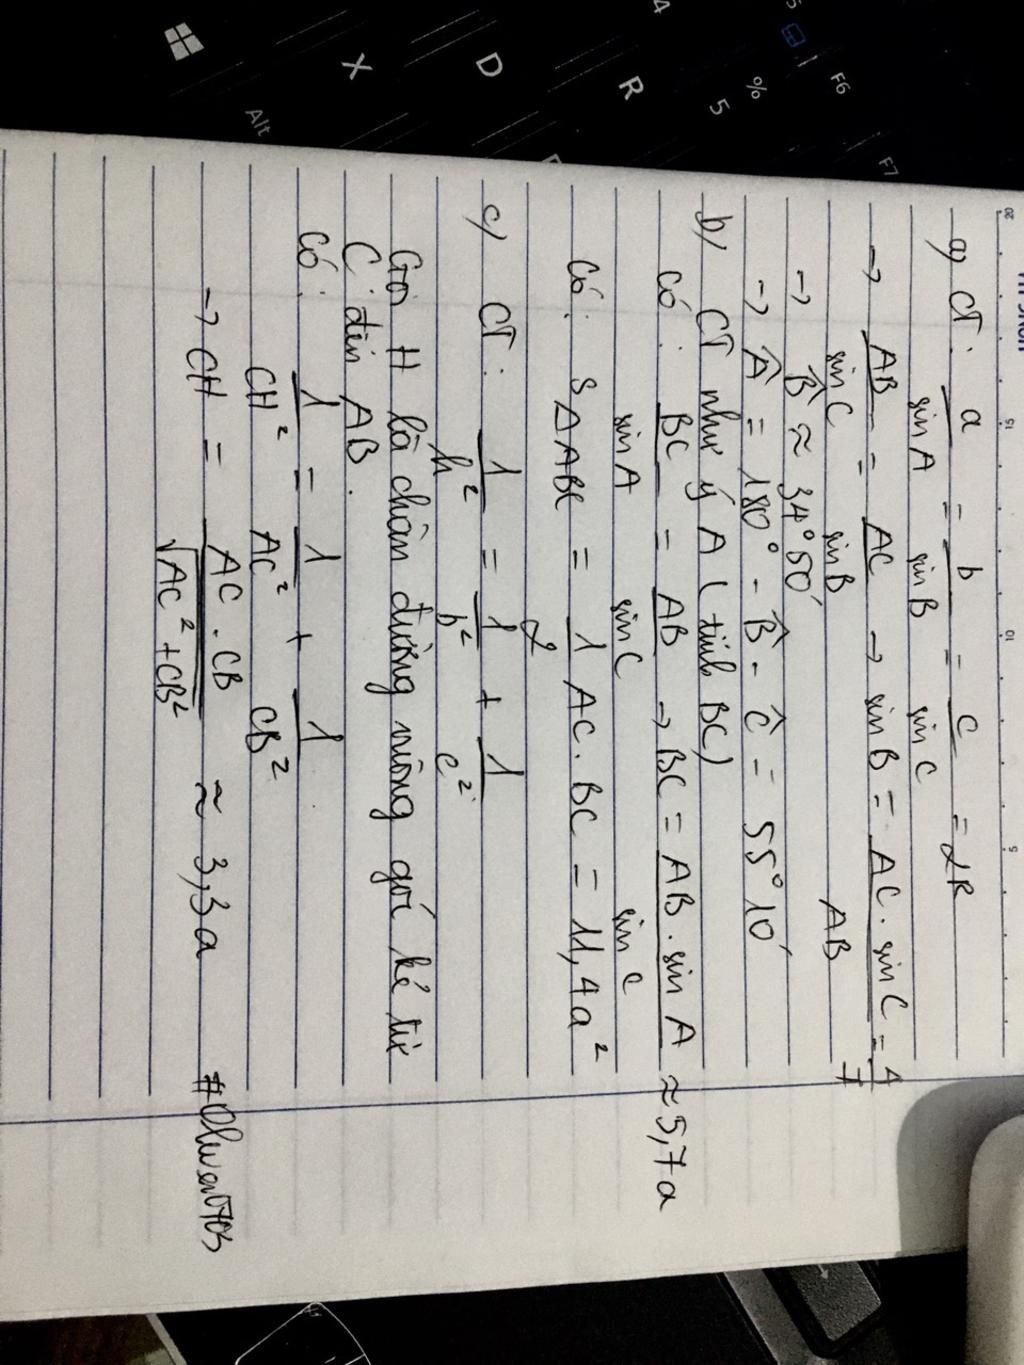 a) CT: a/sinA = b/sinB = c/sinC = 2R
→ AB/sinC = AC/sinB → sinB = AC.sinC/AB = 4/7
→ B̂ ≈ 34°50'
→ Â = 180° - B̂ - Ĉ = 55°10'
b) CT như ý A (tính BC)
Có: BC/sinA = AB/sinC → BC = AB.sinA/sinC ≈ 5,7a
Có: S△ABC = 1/2 AC.BC = 11,4a²
c) CT: 1/h² = 1/b² + 1/c²
Gọi H là chân đường vuông góc kẻ từ
C đến AB.
Có: 1/CH² = 1/AC² + 1/CB²
→ CH = AC.CB/√AC²+CB² ≈ 3,3a
F6
F7
%
5
R
D
X
Alt
4
20
15
10
5